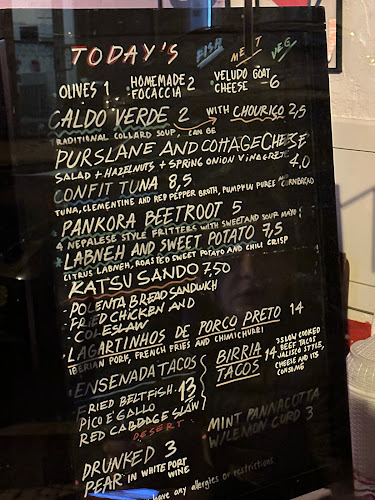 TODAY'S FISH MEAT VEG
OLIVES 1 HOMEMADE FOCACCIA 2 VELUDO GOAT CHEESE -6
CALDO VERDE 2 WITH CHOURIÇO 2,5
TRADITIONAL COLLARD SOUP, CAN BE
PURSLANE AND COTTAGE CHEESE
SALAD + HAZELNUTS + SPRING ONION VINEGRETE 4.0
CONFIT TUNA 8,5
TUNA, CLEMENTINE AND RED PEPPER BROTH, PUMPKIN PUREE AND CORNBREAD
PANKORA BEETROOT 5
4 NEPALESE STYLE FRITTERS WITH SWEET AND SOUR MAYO
LABNEH AND SWEET POTATO 7,5
CITRUS LABNEH, ROASTED SWEET POTATO AND CHILI CRISP
KATSU SANDO 7,50
- POLENTA BREAD SANDWICH
- FRIED CHICKEN AND
- COLESLAW
LAGARTINHOS DE PORCO PRETO 14
IBERIAN PORK, FRENCH FRIES AND CHIMICHURRI
ENSENADA TACOS 13
FRIED BELTFISH.
PICO E' GALLO
RED CABBAGE SLAW
BIRRIA TACOS 14
3 SLOW COOKED
BEEF TACOS
JALISCO STYLE,
CHEESE AND ITS
CONSOMÉ
DESERT
DRUNKED 3
PEAR IN WHITE PORT WINE
MINT PANNACOTTA
W/LEMON CURD 3
have any allergies or restrictions